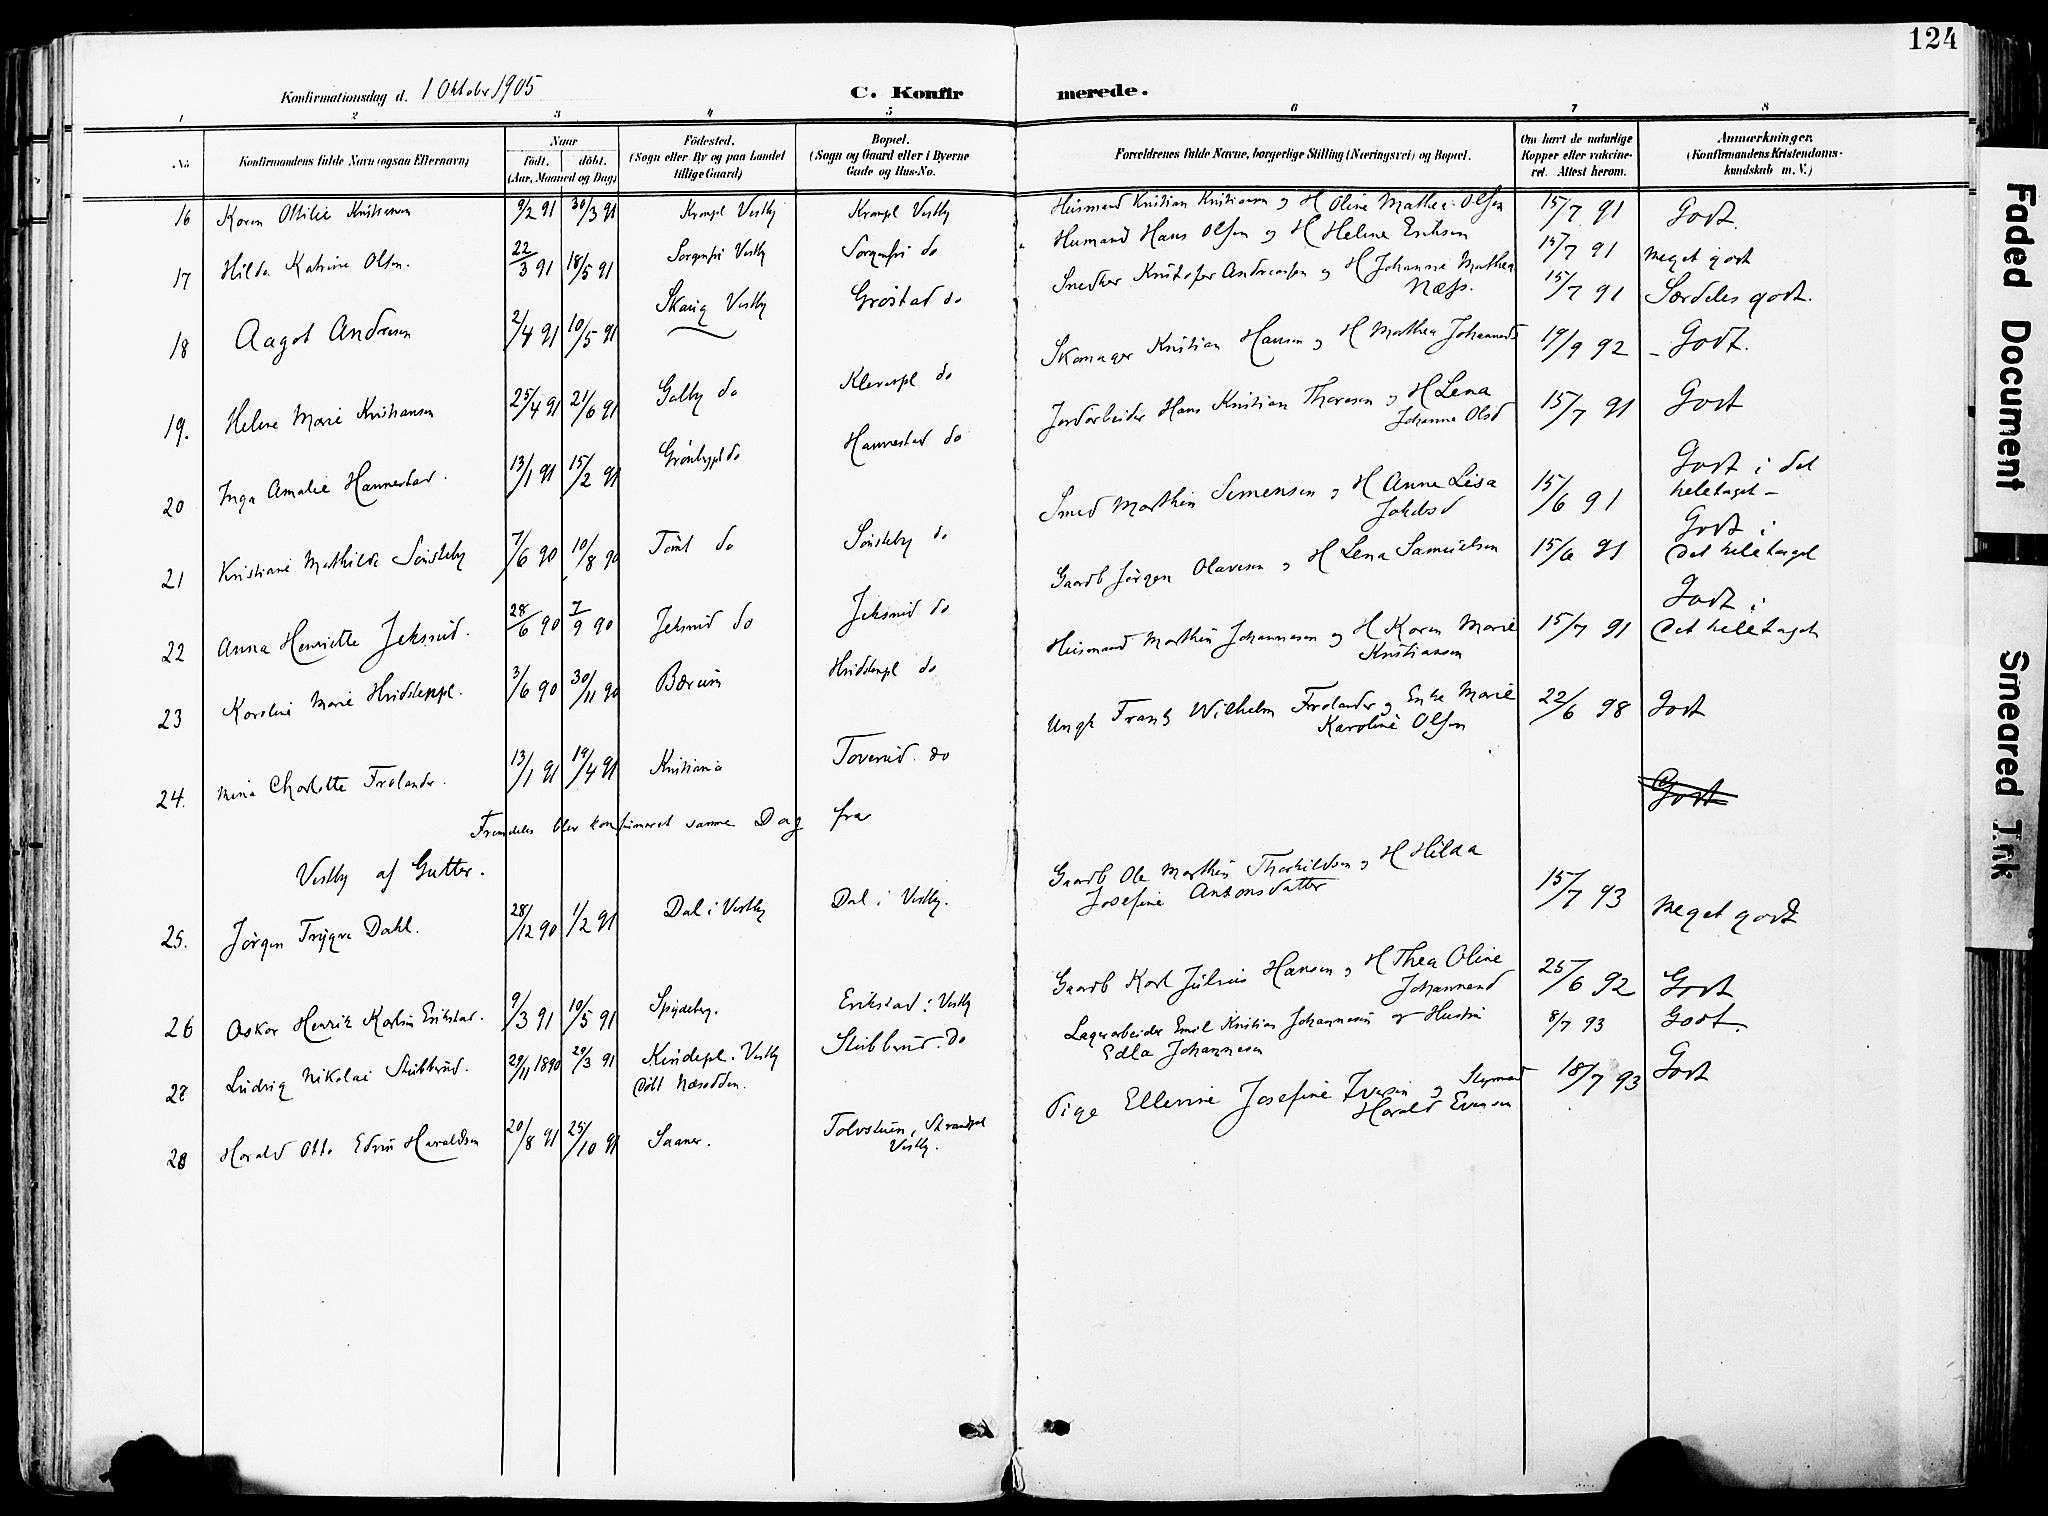 124
Konfirmationsdag d. 1 Oktober 1905
C. Konfir merede.
1 2 3 4 5 6 7 8
No.
Konfirmandens fulde Navn (ogsaa Efternavn)
Naar
Födt. döbt.
(Aar, Maaned og Dag)
Födested.
(Sogn eller By og paa Landet
tillige Gaard)
Bopæl.
(Sogn og Gaard eller i Byerne
Gade og Hus-No.
Forældrenes fulde Navne, borgerlige Stilling (Næringsvei) og Bopæl.
Om havt de naturlige
Kopper eller vakcine-
ret. Attest herom.
Anmærkninger.
(Konfirmandens Kristendoms-
kundskab m. V.)
16 Karen Ottilie Kristiansen 9/2 91 30/3 91 Krompl Vestby Krompl Vestby Husmand Kristian Kristiansen og H Oline Mathea Olsen 15/7 91 Godt.
17 Hilda Katrine Olsen. 22/3 91 18/5 91 Sorgenfri Vestby Sorgenfri do Husmand Hans Olsen og H Helene Eriksen 15/7 91 Meget godt
18 Aagot Andresen 2/4 91 10/5 91 Skaug Vestby Gröstad do Snedker Kristofer Andreassen og H Johanne Mathea
Næss. 15/7 91 Særdeles godt.
19. Helene Marie Kristiansen 25/4 91 21/6 91 Galby do Kleverpl do Skomager Kristian Hansen og H Mathea Johannesd 19/9 92 - Godt.
20 Inga Amalie Hannestad. 13/1 91 15/2 91 Grönbypl do Hannestad do Jordarbeider Hans Kristian Thoresen og H Lena
Johanne Olsd 15/7 91 Godt
21 Kristiane Mathilde Sönsteby 7/6 90 10/8 90 Tömt do Sönsteby do Smed Marthin Simensen og H Anne Lisa
Jakobsd 15/6 91 Godt i det
heletaget -
22 Anna Henriette Jeksrud. 28/6 90 7/9 90 Jeksrud do Jeksrud do Gaardb Jörgen Olavesen og H Lena Samuelsen 15/6 91 Godt i
det heletaget
23 Karoline Marie Hvidstenpl. 3/6 90 30/11 90 Bærum Hvidstenpl do Husmand Marthin Johannesen og H Karen Marie
Kristiansen 15/7 91 Godt i
det heletaget
24. Mina Charlotte Frolander. 13/1 91 19/4 91 Kristiania Toverud. do Ungk Frantz Wilhelm Frolander og Enke Marie
Karoline Olsen 22/6 98 Godt
Godt
Fremdeles blev konfirmeret samme Dag fra
Vestby af Gutter.
25. Jörgen Trygve Dahl. 28/12 90 1/2 91 Dal i Vestby Dal i Vestby. Gaardb Ole Marthin Thorkildsen og H Hilda
Josefine Antonsdatter 15/7 93 Meget godt
26 Oskar Henrik Karlsen Erikstad. 9/3 91 10/5 91 Spydeberg. Erikstad i Vestby Gaardb Karl Julius Hansen og H Thea Oline
Johannesd 25/6 92 Godt
27 Ludvig Nikolai Stubberud. 29/11 1890 29/3 91 Kindepl. Vestby
döbt Næsodden. Stubberud. do Lagerarbeider Emil Kristian Johannesen og Hustru
Edla Johannesen 8/7 93 Godt.
28 Harald Otto Edvin Haraldsen 20/8 91 25/10 91 Saaner. Tolvstuen, Strandpl
Vestby. Pige Ellevine Josefine Iversen og Styrmand
Harald Evensen 18/7 93 Godt
Faded Document
Smeared Ink